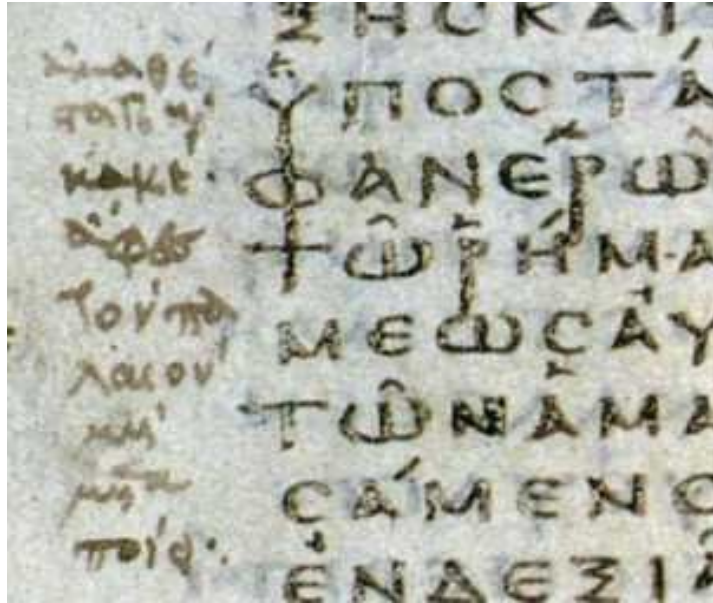 ἀμαθέ
στατε κ
κακὲ·
ἄφες
τὸν πα
λαιον
μὴ
μετα
ποίει·
ΞΗϹΚΑΙ
ὙΠΟϹΤΆ
ΦΑΝΕΡῶ
ΤῶΡΉΜΑ
ΜΕΩϹΑΥ
ΤῶΝἉΜΑ
ϹΆΜΕΝΟ
ἘΝΔΕΞΙΑ